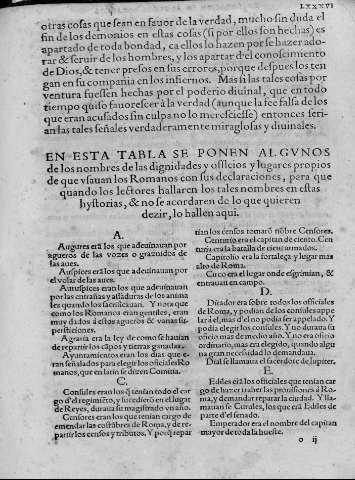 LXXXVI
otras cosas que sean en fauor de la verdad, mucho sin duda el
fin de los demonios en estas cosas (si por ellos son hechas) es
apartado de toda bondad, ca ellos lo hazen por se hazer ado-
rar & seruir de los hombres, y los apartar del conoscimiento
de Dios, & tener presos en sus errores, porque despues los ten
gan en su compania en los infiernos. Mas si las tales cosas por
ventura fuessen hechas por el poderio diuinal, que en todo
tiempo quiso fauorescer à la verdad (aunque la fee falsa de los
que eran acusados sin culpa no lo meresciesse) entonces seri-
an las tales señales verdaderamente miraglosas y diuinales.
EN ESTA TABLA SE PONEN ALGVNOS
de los nombres de las dignidades y officios y lugares propios
de que vsauan los Romanos con sus declaraciones, pera que
quando los lectores hallaren los tales nombres en estas
hystorias, & no se acordaren de lo que quieren
dezir, lo hallen aqui.
A.
Augures erã los que adeuinauan por
agueros de las vozes o graznidos de
las aues.
Auspices erã los que adeuinauan por
el volar de las aues.
Aruspices eran los que adeuinauan
por las entrañas y assaduras de los anima
les quando los sacrificauan. Y nota que
como los Romanos eran gentiles, eran
muy dados à estos agueros & vanas su-
persticiones.
Agraria era la ley de como se hauian
de repartir los cãpos y tierras ganadas.
Ayuntamientos eran los dias que e-
ran señalados para elegir los officiales Ro
manos, que en latin se dizen Comitia.
C.
Consules eran los q̃ tenian todo el car
go d'el regimiẽto, y succedierõ en el lugar
de Reyes, duraua su magistrado vn año.
Censores eran los que tenian cargo de
emendar las costũbres de Roma, y de re-
partir los censos y tributos. Y porq̃ repar
tian los censos tomarõ nõbre Censores.
Centurio era el capitan de ciento. Cen
turia era la batalla de ciento armados.
Capitolio era la fortaleza y lugar mas
alto de Roma.
Circo era el lugar onde esgrimian, &
entrauan en campo.
D.
Dictador era sobre todos los officiales
de Roma, y podian de los consules appe-
lar a el, mas d'el no podia ser appelado. Y
podia elegir los consules. Y no duraua su
officio mas de medio año. Y no era officio
ordinario, mas era elegido, quando algu
na gran necessidad lo demandaua.
Dial se llamaua el sacerdote de Iupiter.
E.
Ediles erã los officiales que tenian car
go de hazer traher las prouisiones à Ro-
ma, y demandar reparar la ciudad. Y lla-
mauan se Curules, los que erã Ediles de
parte d'el senado.
Emperador era el nombre del capitan
mayor de toda la hueste.
o ij